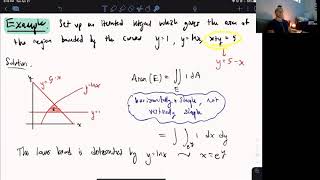 Example: Set up an iterated integral which gives the area of
the region bounded by the curves y=1, y=lnx, x+y=5
y=5-x
Solution.
y
y=5-x
y=lnx
y=1
x
Area(E) = ∬ 1 dA
E
horizontally simple, not
vertically simple
= ∫ ∫ 1 dx dy
e^y
The lower bound is determined by y=lnx ~> x=e^y